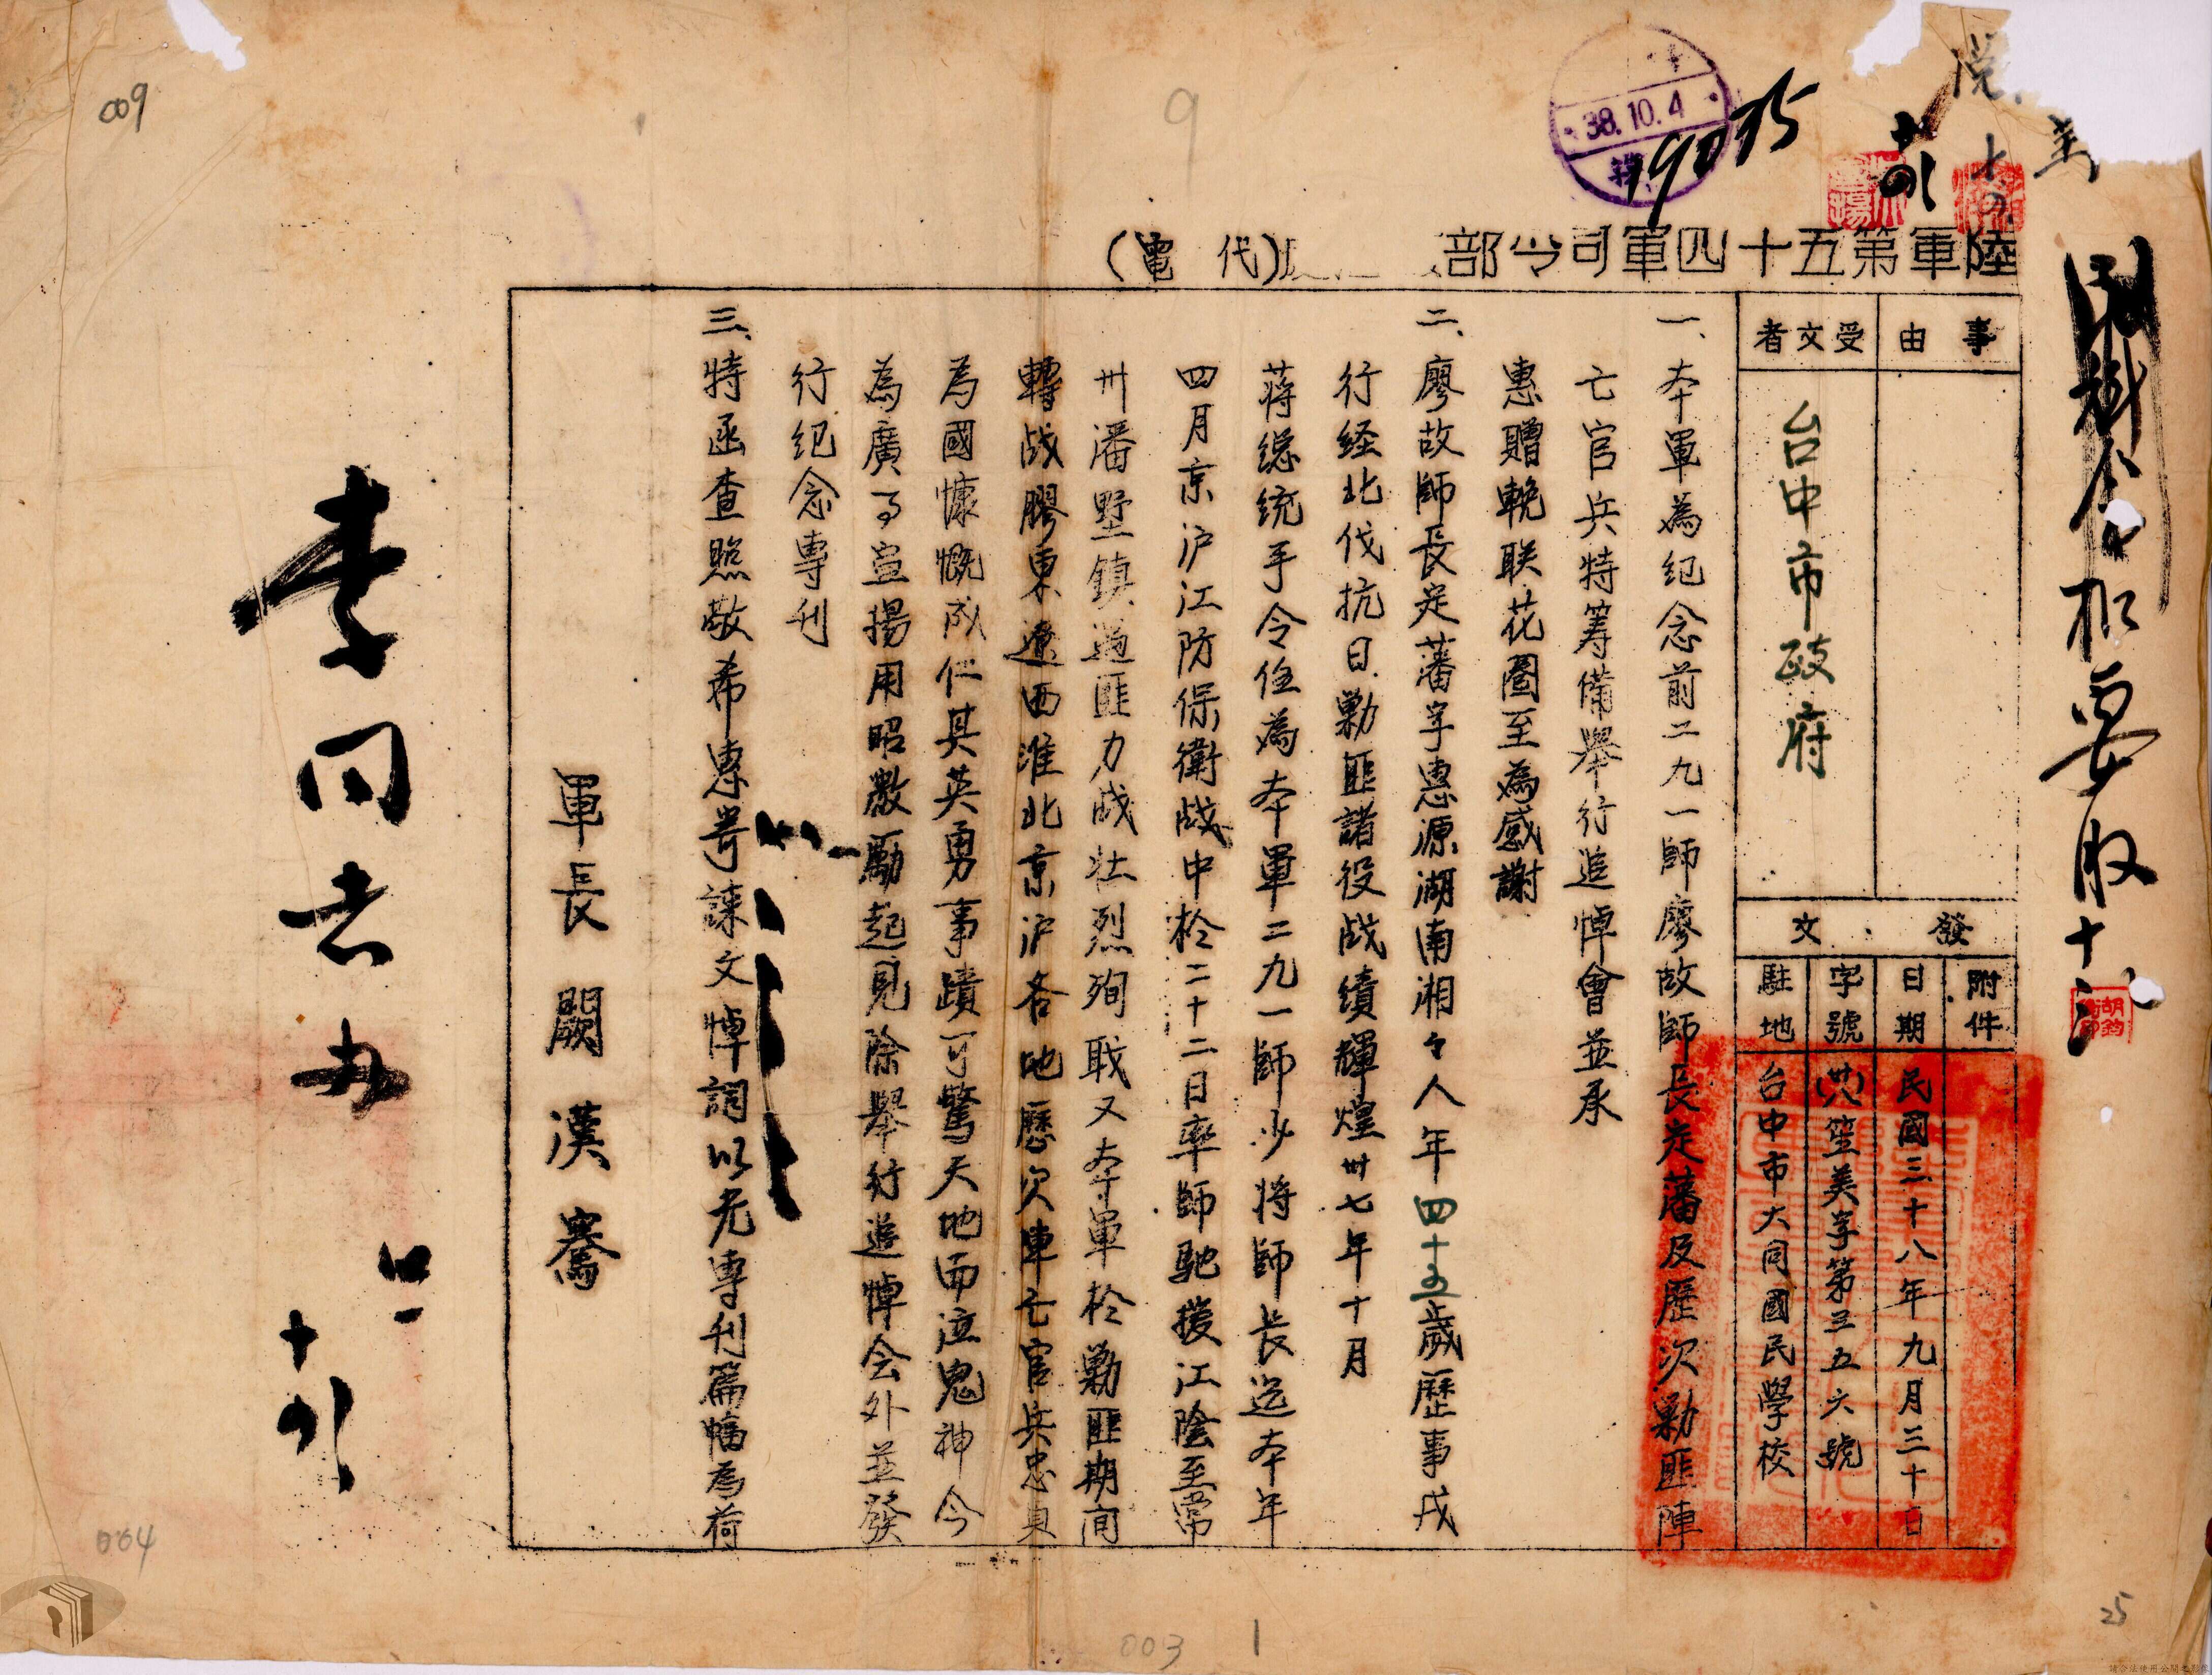 009
9
38.10.4
19075
陸軍第五十四軍司令部
(代電)
事由
受文者
台中市政府
發文
附件
日期
民國三十八年九月三十日
字號
(卅八)笙美字第三五六號
駐地
台中市大同國民學校
一、本軍為纪念前二九一師廖故師長定藩及歷次勦匪陣
亡官兵特筹備舉行追悼會並承
惠贈輓联花圈至為感謝
二、廖故師長定藩字惠源湖南湘々人年四十五歲歷事戎
行経北伐抗日勦匪諸役战績輝煌卅七年十月
蒋総统手令任為本軍二九一師少将師長迄本年
四月京沪江防保衛战中於二十二日率師馳援江陰至常
州潘墅鎮遇匪力战壮烈殉戢又本軍於勦匪期间
轉战膠東遼西淮北京沪各地歷次陣亡官兵忠貞
為國慷慨成仁其英勇事蹟可驚天地而泣鬼神今
為廣为宣揚用昭激勵起見除舉行追悼会外並發
行纪念專刊
三、特函查照敬希惠寄誄文悼詞以光專刊篇幅為荷
軍長闕漢騫
李同志
004
003
1
25